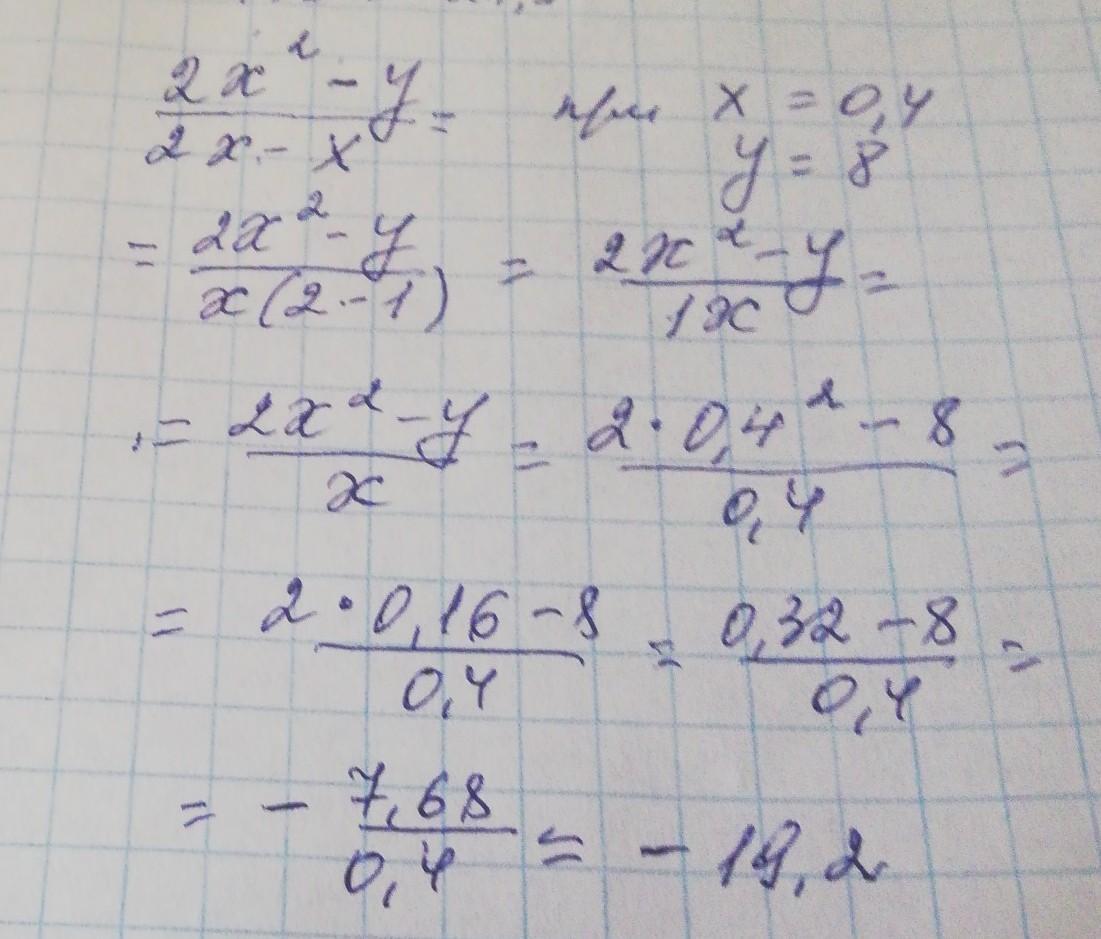 (2x² - y)/(2x - x) = при x = 0,4
y = 8
= (2x² - y)/(x(2 - 1)) = (2x² - y)/(1x) =
= (2x² - y)/x = (2 · 0,4² - 8)/(0,4) =
= (2 · 0,16 - 8)/(0,4) = (0,32 - 8)/(0,4) =
= - (7,68)/(0,4) = - 19,2